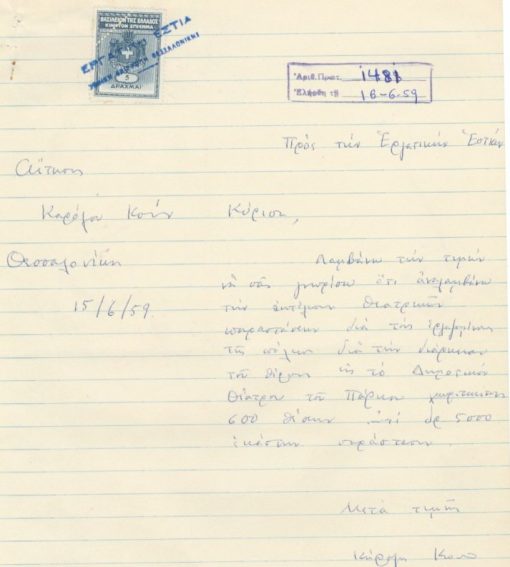 ΒΑΣΙΛΕΙΟΝ ΤΗΣ ΕΛΛΑΔΟΣ
ΕΡΓ ΕΣΤΙΑ
ΘΕΣΣΑΛΟΝΙΚΗΣ
5
ΔΡΑΧΜΑΙ
Ἀριθ. Πρωτ. 1481
Ἐλήφθη τῇ 16-6-59
Πρὸς τὴν Ἐργατικὴν Ἑστίαν
Αἴτησις
Καρόλου Κοὺν Κύριοι,
Θεσσαλονίκη Λαμβάνω τὴν τιμὴν
15/6/59. νὰ σᾶς γνωρίσω ὅτι ἀναλαμβάνω
τὴν θεατρικῶν
παραστάσεων διὰ τοὺς ἐργαζομένους
τῆς πόλεως διὰ τὴν διάρκειαν
τοῦ θέρους εἰς τὸ Δημοτικὸν
Θέατρον τοῦ Πάρκου χωρητικότητος
600 θέσεων ἀντὶ δρ 5000
ἑκάστην παράστασιν.
Μετὰ τιμῆς
Κάρολος Κουν